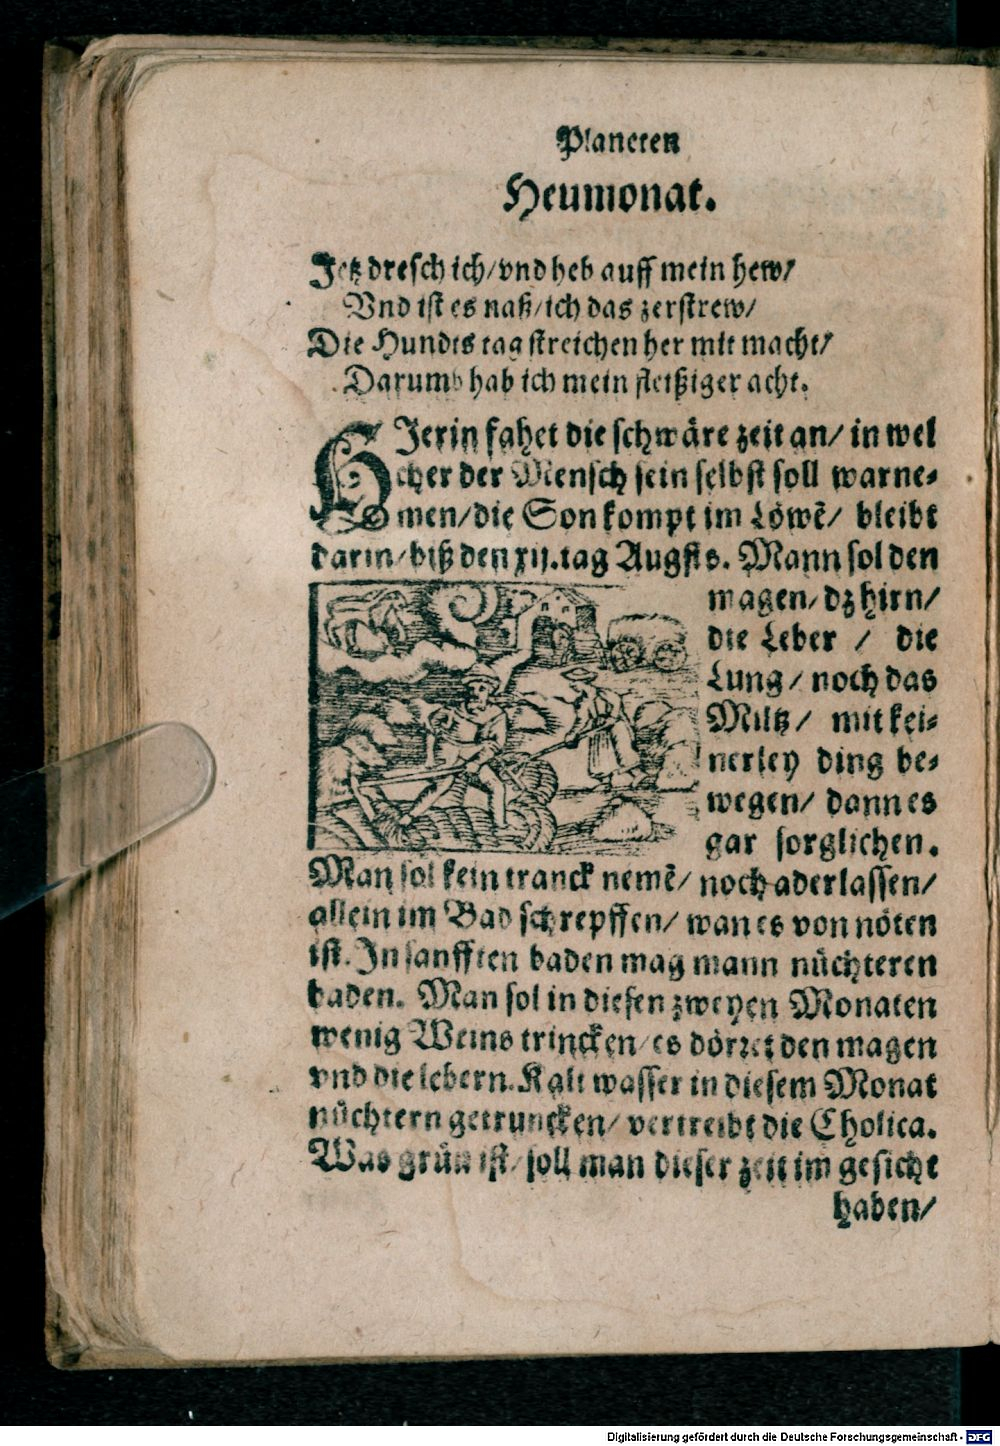 Planeten
Heumonat.
Jetz dresch ich/ vnd heb auff mein hew/
Vnd ist es naß/ ich das zerstrew/
Die Hundts tag streichen her mit macht/
Darumb hab ich mein fleißiger acht.
HJerin fahet die schwäre zeit an/ in wel
cher der Mensch sein selbst soll warne-
men/ die Son kompt im Löwẽ/ bleibt
darin/ biß den xij. tag Augsts. Mann sol den
magen/ dz hirn/
die Leber / die
Lung/ noch das
Miltz/ mit kei-
nerley ding be-
wegen/ dann es
gar sorglichen.
Man sol kein tranck nemẽ/ noch aderlassen/
allein im Bad schrepffen/ wan es von nöten
ist. In sanfften baden mag mann nüchteren
baden. Man sol in diesen zweyen Monaten
wenig Weins trincken/ es dörret den magen
vnd die lebern. Kalt wasser in diesem Monat
nüchtern getruncken/ vertreibt die Cholica.
Was grün ist/ soll man dieser zeit im gesicht
haben/
Digitalisierung gefördert durch die Deutsche Forschungsgemeinschaft - DFG